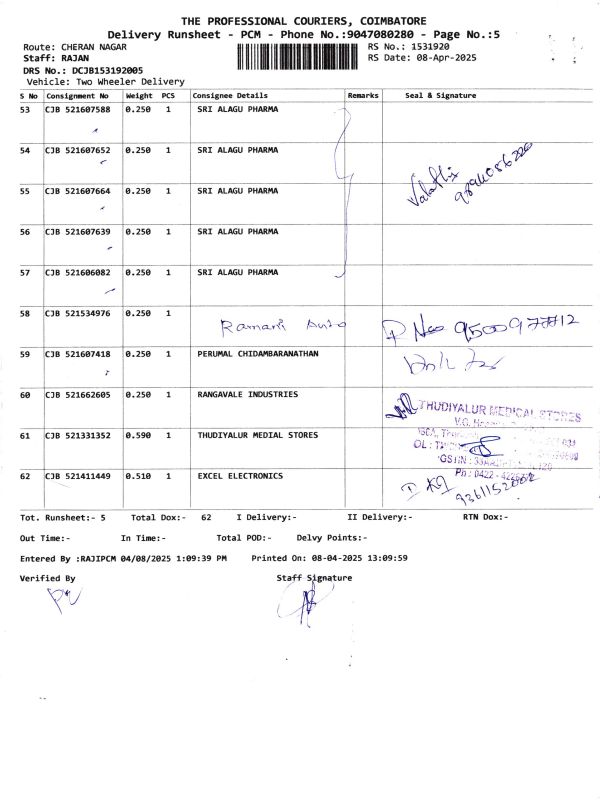 THE PROFESSIONAL COURIERS, COIMBATORE
Delivery Runsheet - PCM - Phone No.:9047080280 - Page No.:5
Route: CHERAN NAGAR RS No.: 1531920
Staff: RAJAN RS Date: 08-Apr-2025
DRS No.: DCJB153192005
Vehicle: Two Wheeler Delivery
S No Consignment No Weight PCS Consignee Details Remarks Seal & Signature
53 CJB 521607588 0.250 1 SRI ALAGU PHARMA
54 CJB 521607652 0.250 1 SRI ALAGU PHARMA
55 CJB 521607664 0.250 1 SRI ALAGU PHARMA
56 CJB 521607639 0.250 1 SRI ALAGU PHARMA
57 CJB 521606082 0.250 1 SRI ALAGU PHARMA
58 CJB 521534976 0.250 1 Ramani Auto
59 CJB 521607418 0.250 1 PERUMAL CHIDAMBARANATHAN
60 CJB 521662605 0.250 1 RANGAVALE INDUSTRIES
THUDIYALUR MEDICAL STORES
61 CJB 521331352 0.590 1 THUDIYALUR MEDIAL STORES
62 CJB 521411449 0.510 1 EXCEL ELECTRONICS
Tot. Runsheet:- 5 Total Dox:- 62 I Delivery:- II Delivery:- RTN Dox:-
Out Time:- In Time:- Total POD:- Delvy Points:-
Entered By :RAJIPCM 04/08/2025 1:09:39 PM Printed On: 08-04-2025 13:09:59
Verified By Staff Signature